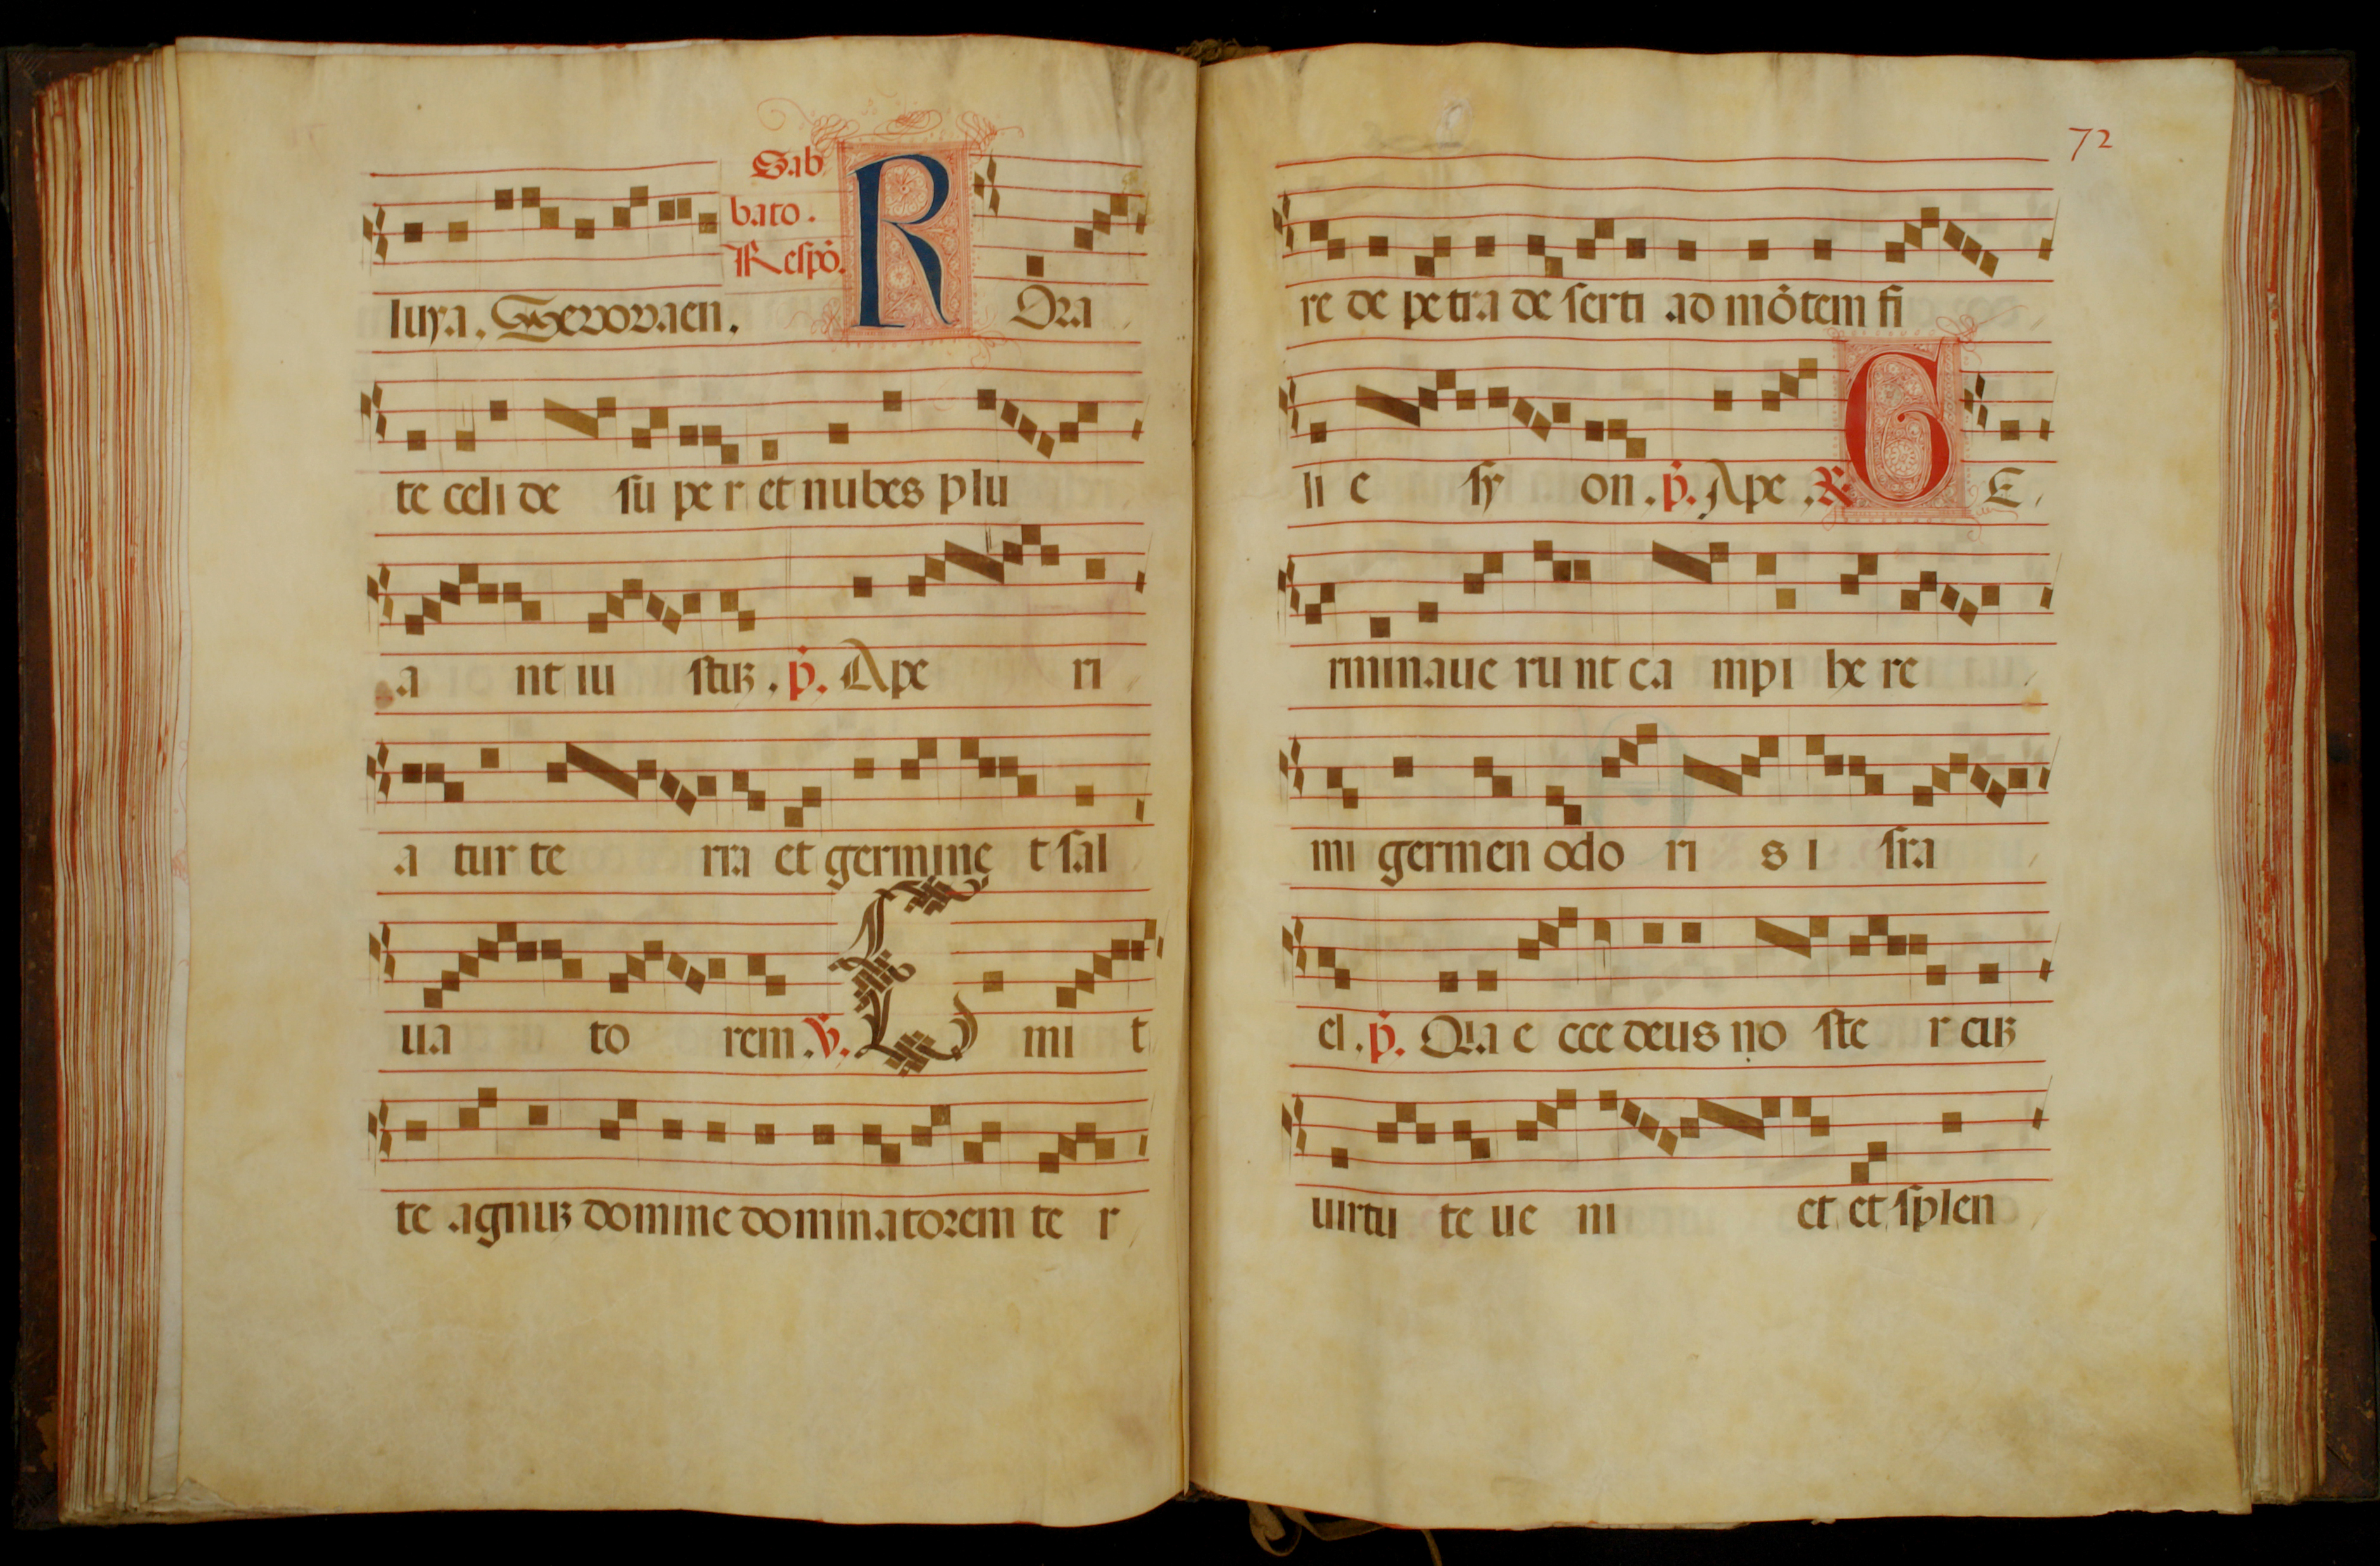 Sab
bato.
Respō.
luya. Seuouaen. R Ora
te celi de su pe r et nubes plu
a nt iu stus. p̄. Ape ri
a tur te rra et germine t sal
ua to rem. v̄. E mi t
te agnus domine dominatorem te r
72
re de petra de serti ad mōtem fi
li e sy on. p̄. Ape. R G E
rminaue ru nt ca mpi he re
mi germen odo ri s i sra
el. p̄. Qia e cce deus no ste r cus
uirtu te ue ni et et splen